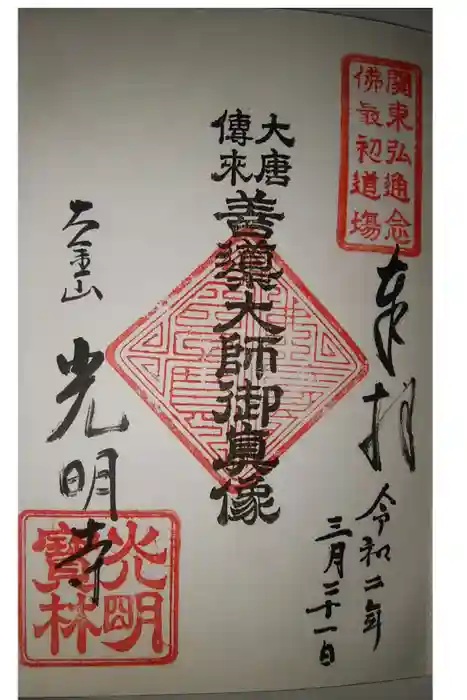 關東弘通念
佛最初道場
奉拝
令和二年
三月二十一日
大唐
傳來
善導大師御真像
天金山
光明寺
光明
寶林